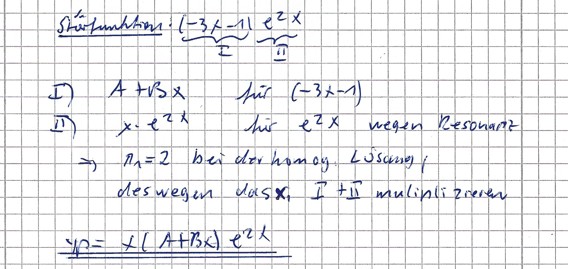 Störfunktion: (-3x-1) e^2x
I II
I) A+Bx für (-3x-1)
II) x · e^2x für e^2x wegen Resonanz
⇒ r₁=2 bei der homog. Lösung,
deswegen das x, I + II muliplizieren
yp = x(A+Bx) e^2x